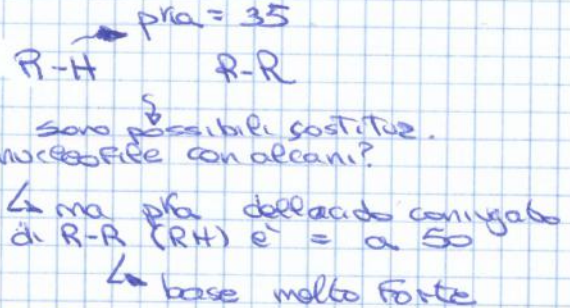 pKa = 35
R-H R-R
sono possibili sostituz.
nucleofile con alcani?
↳ ma pKa dell'acido coniugato
di R-R (RH) è = a 50
↳ base molto forte